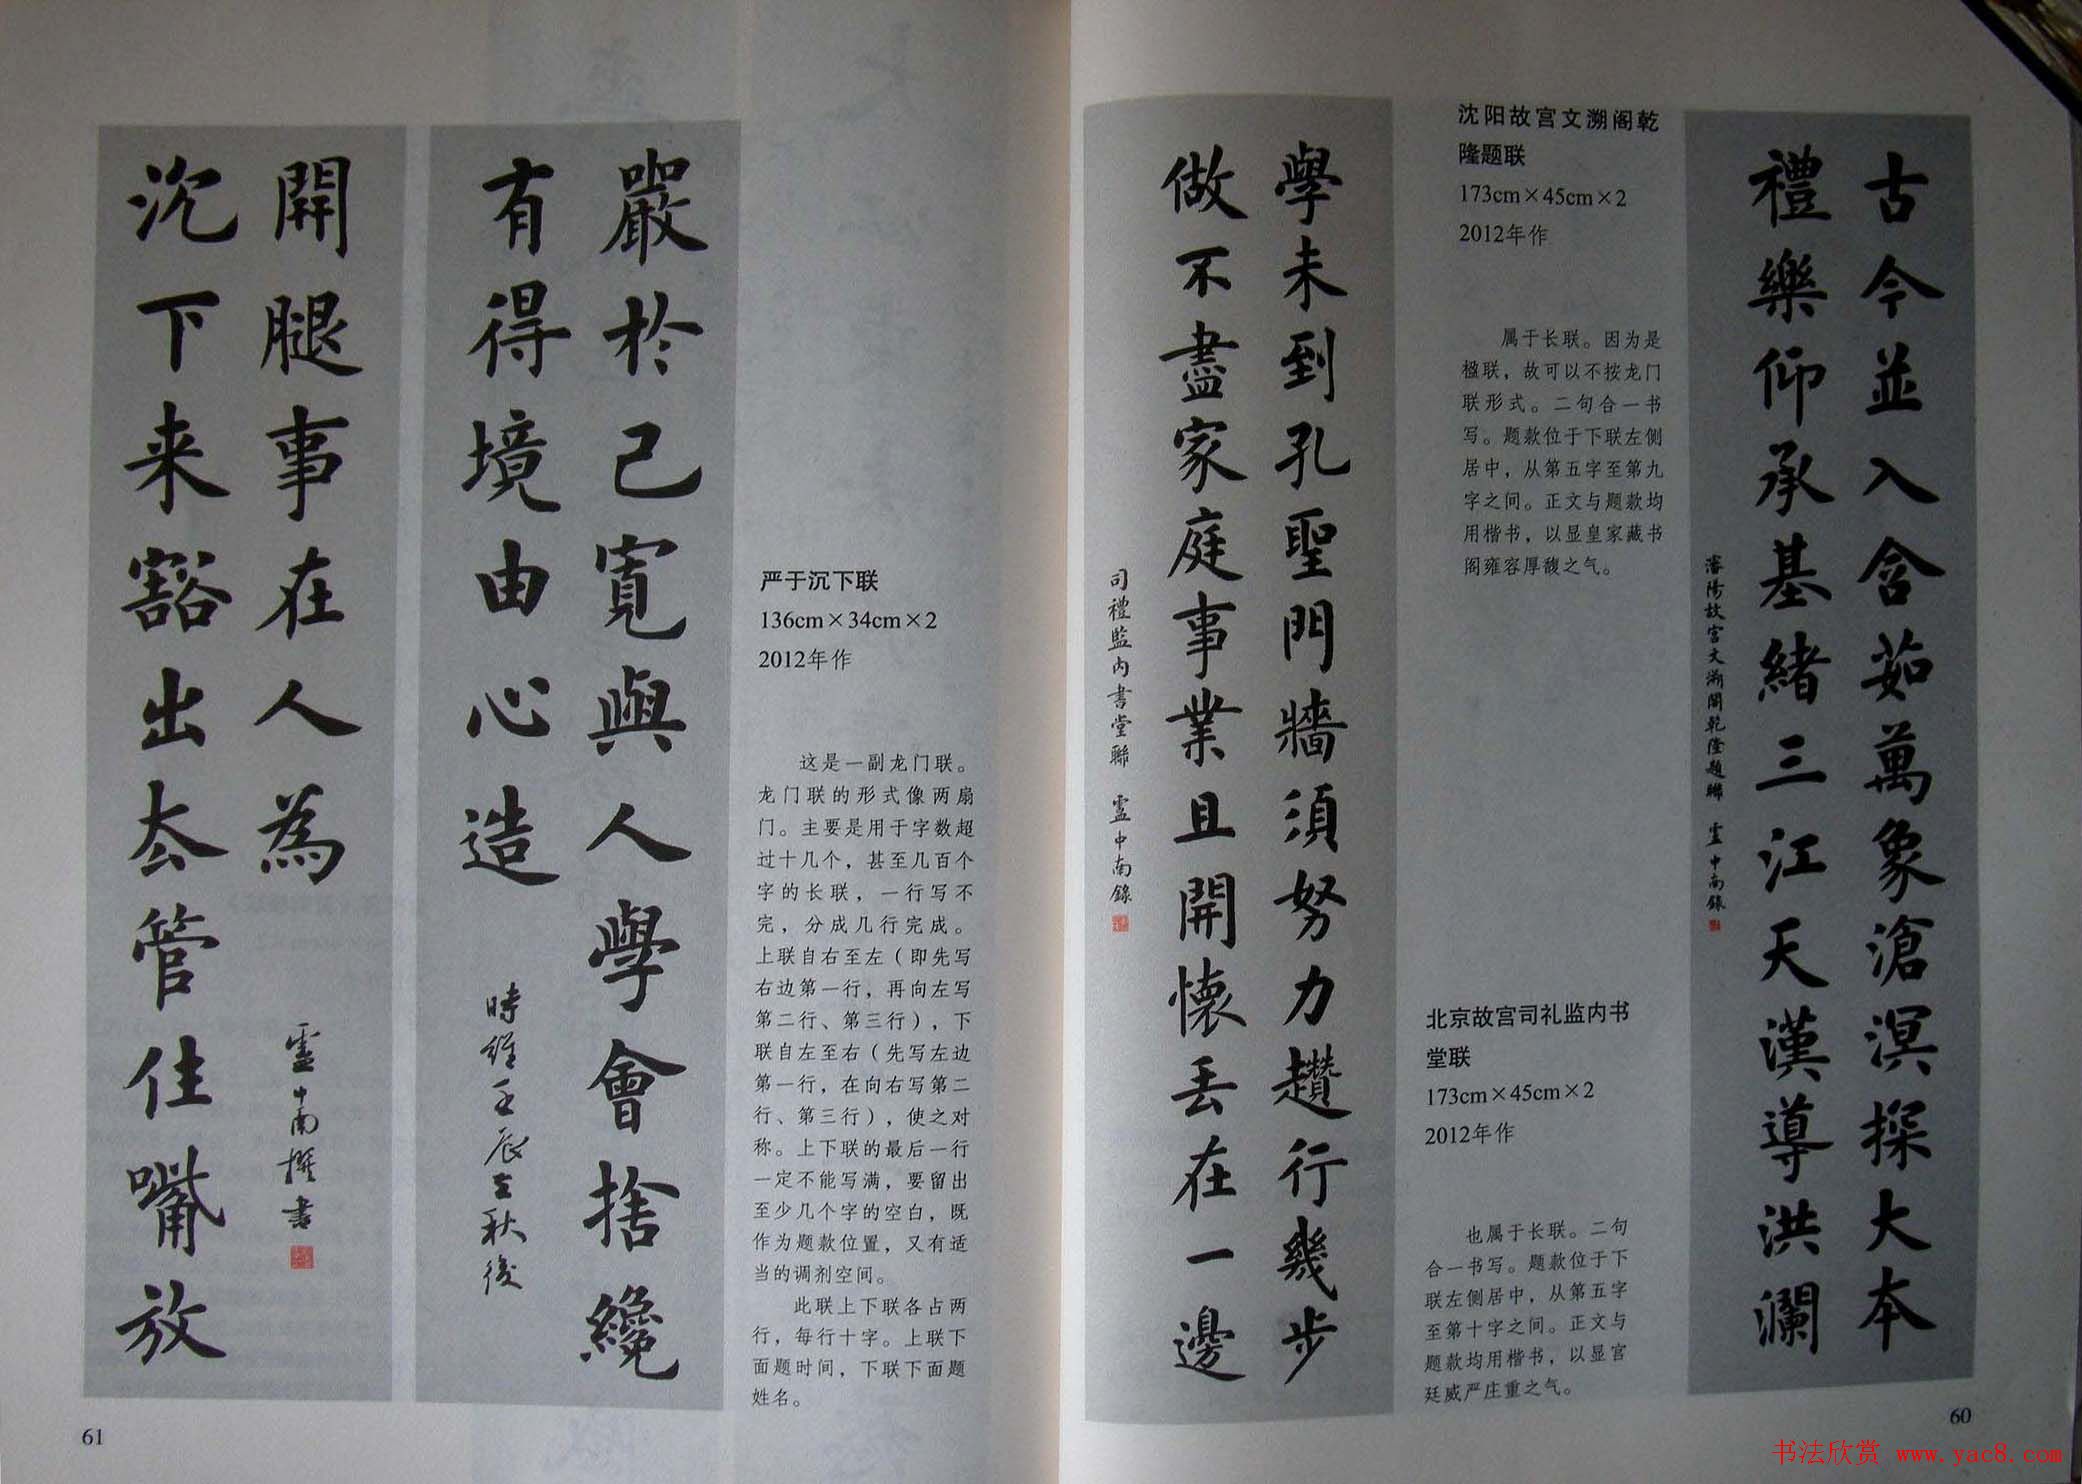 古今並入含茹萬象滄溟探大本
禮樂仰承基緒三江天漢導洪瀾
瀋陽故宫文溯閣乾隆題聯 盧中南錄
沈阳故宫文溯阁乾
隆题联
173cm×45cm×2
2012年作
属于长联。因为是
楹联，故可以不按龙门
联形式。二句合一书
写。题款位于下联左侧
居中，从第五字至第九
字之间。正文与题款均
用楷书，以显皇家藏书
阁雍容厚馥之气。
北京故宫司礼监内书
堂联
173cm×45cm×2
2012年作
也属于长联。二句
合一书写。题款位于下
联左侧居中，从第五字
至第十字之间。正文与
题款均用楷书，以显宫
廷威严庄重之气。
學未到孔聖門牆須努力趲行幾步
做不盡家庭事業且開懷丢在一邊
司禮監内書堂聯 盧中南錄
60
严于沉下联
136cm×34cm×2
2012年作
这是一副龙门联。
龙门联的形式像两扇
门。主要是用于字数超
过十几个，甚至几百个
字的长联，一行写不
完，分成几行完成。
上联自右至左（即先写
右边第一行，再向左写
第二行、第三行），下
联自左至右（先写左边
第一行，在向右写第二
行、第三行），使之对
称。上下联的最后一行
一定不能写满，要留出
至少几个字的空白，既
作为题款位置，又有适
当的调剂空间。
此联上下联各占两
行，每行十字。上联下
面题时间，下联下面题
姓名。
嚴於己寬與人學會捨纔
有得境由心造
時維壬辰立秋後
沉下来豁出去管住嘴放
開腿事在人為
盧中南撰書
61
书法欣赏 www.yac8.com